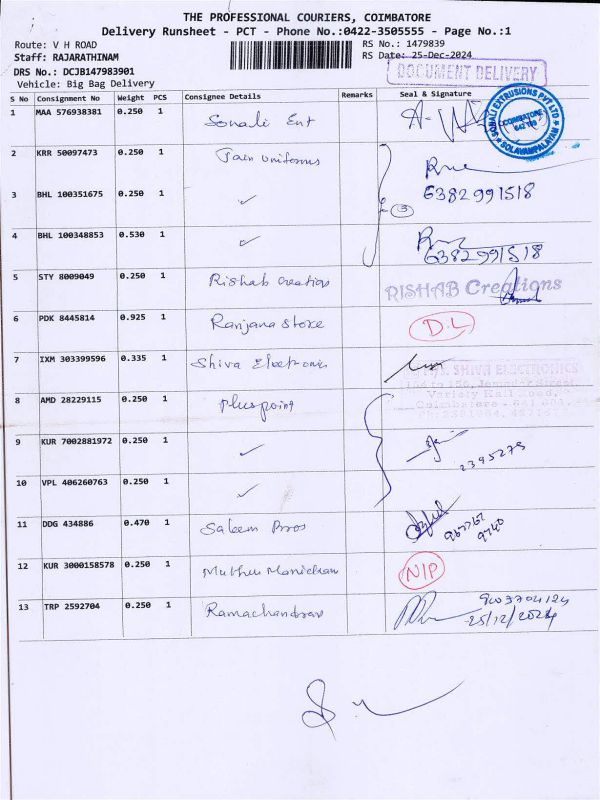 THE PROFESSIONAL COURIERS, COIMBATORE
Delivery Runsheet - PCT - Phone No.:0422-3505555 - Page No.:1
Route: V H ROAD RS No.: 1479839
Staff: RAJARATHINAM RS Date: 25-Dec-2024
DRS No.: DCJB147983901 DOCUMENT DELIVERY
Vehicle: Big Bag Delivery
S No Consignment No Weight PCS Consignee Details Remarks Seal & Signature
1 MAA 576938381 0.250 1 Sonali Ent
SONALI EXTRUSIONS PVT LTD COIMBATORE SOLAVAMPALAYAM
2 KRR 50097473 0.250 1 Jain Uniforms
3 BHL 100351675 0.250 1 ✓ 3 6382991518
4 BHL 100348853 0.530 1 ✓ 6382991518
5 STY 8009049 0.250 1 Rishab Creation RISHAB Creations
6 PDK 8445814 0.925 1 Ranjana Store D.L
7 IXM 303399596 0.335 1 Shiva Electronics SHIVA ELECTRONICS
Variety Hall Road,
8 AMD 28229115 0.250 1 Pluspoint
9 KUR 7002881972 0.250 1 ✓ 2395275
10 VPL 406260763 0.250 1 ✓
11 DDG 434886 0.470 1 Saleem Bros
12 KUR 3000158578 0.250 1 Muthu Manickam NIP
13 TRP 2592704 0.250 1 Ramachandran 9003704124
25/12/2024